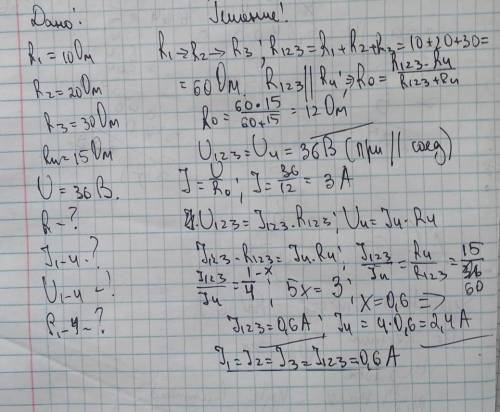 Дано:
R₁=10Ом
R₂=20Ом
R₃=30Ом
R₄=15Ом
U=36В.
R-?
I₁₋₄-?
U₁₋₄-?
P₁₋₄-?
Решение!
R₁→R₂→R₃; R₁₂₃=R₁+R₂+R₃=10+20+30=
=60Ом. R₁₂₃||R₄⇒R₀=R₁₂₃·R₄/R₁₂₃+R₄
R₀=60·15/60+15=12Ом
U₁₂₃=U₄=36В(при || соед)
I=U/R₀; I=36/12=3А
U₁₂₃=I₁₂₃·R₁₂₃; U₄=I₄·R₄
I₁₂₃·R₁₂₃=I₄·R₄; I₁₂₃/I₄=R₄/R₁₂₃=15/60
I₁₂₃/I₄=1-x/4; 5x=3; x=0,6⇒
I₁₂₃=0,6А; I₄=4·0,6=2,4А
I₁=I₂=I₃=I₁₂₃=0,6А